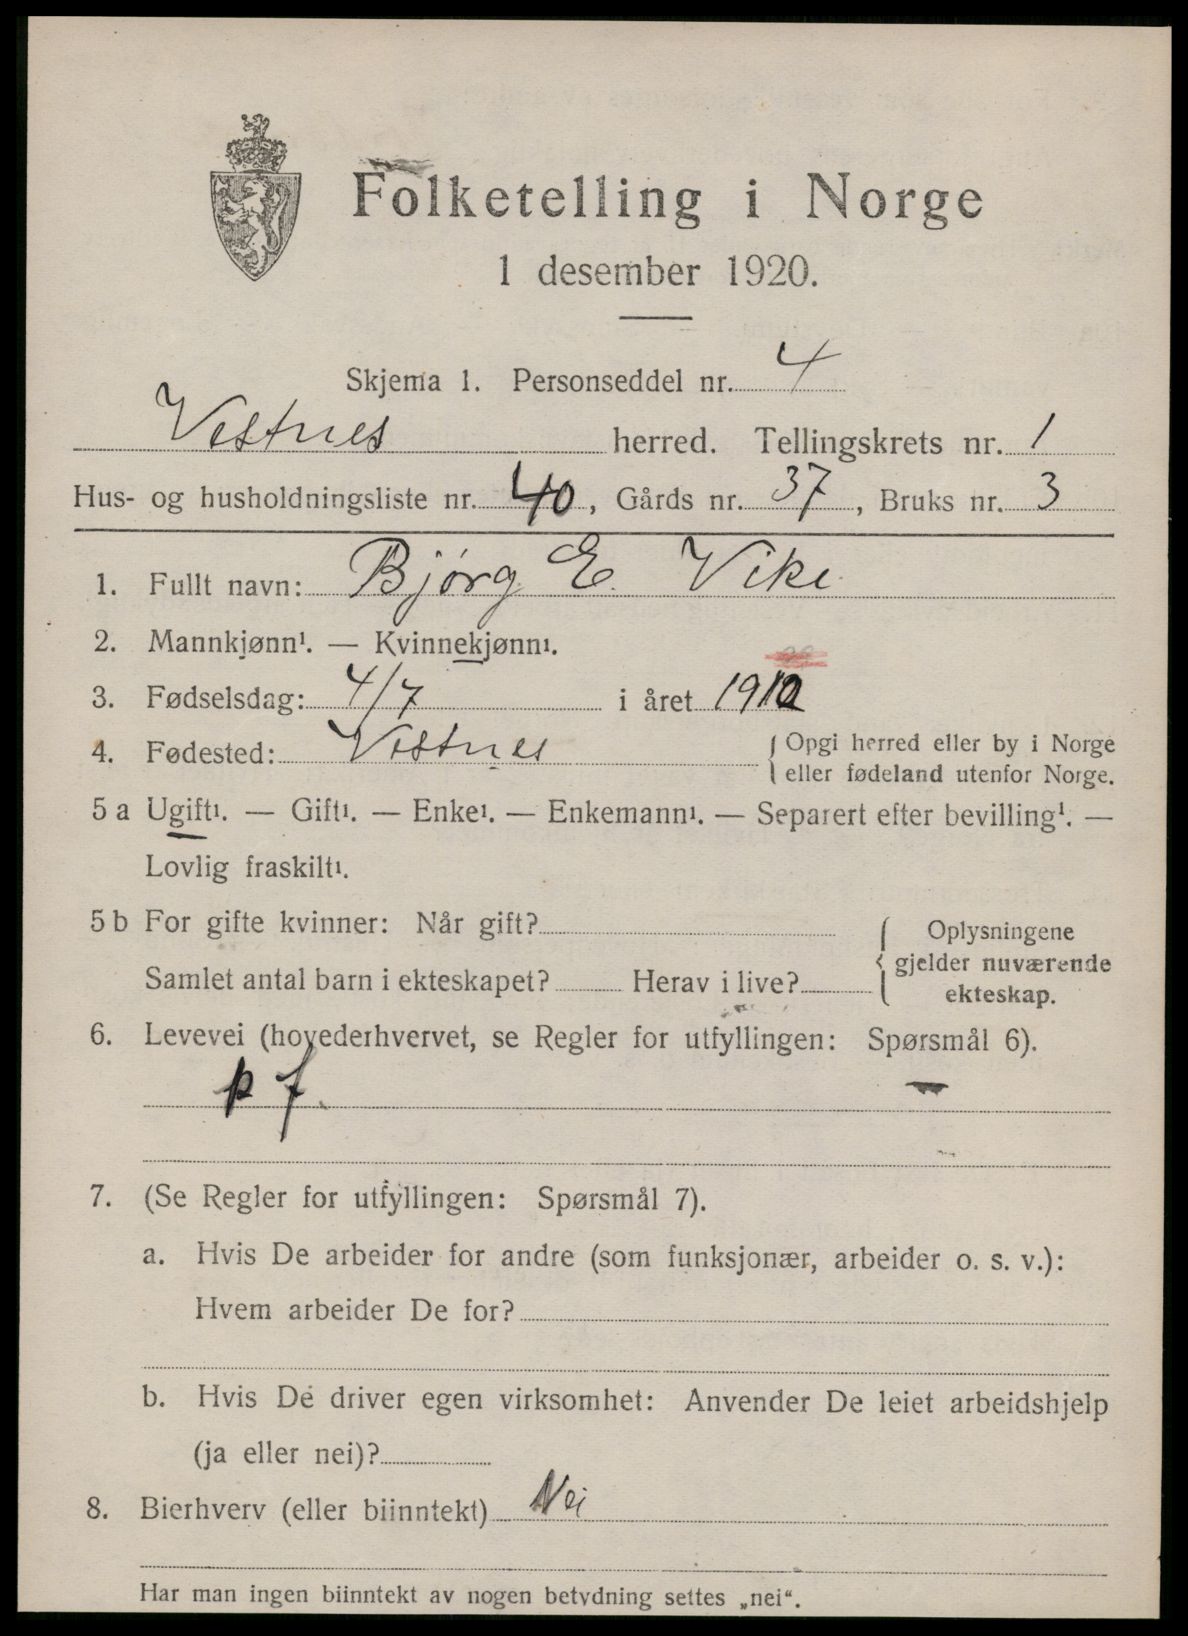 Folketelling i Norge
1 desember 1920.
Skjema 1. Personseddel nr. 4
Vestnes herred. Tellingskrets nr. 1
Hus- og husholdningsliste nr. 40, Gårds nr. 37, Bruks nr. 3
1. Fullt navn: Bjørg E. Vike
2. Mannkjønn¹. — Kvinnekjønn¹.
3. Fødselsdag: 4/7 i året 1910
4. Fødested: Vestnes { Opgi herred eller by i Norge
eller fødeland utenfor Norge.
5 a Ugift¹. — Gift¹. — Enke¹. — Enkemann¹. — Separert efter bevilling¹. —
Lovlig fraskilt¹.
5 b For gifte kvinner: Når gift?
Samlet antal barn i ekteskapet? Herav i live?
{ Oplysningene
gjelder nuværende
ekteskap.
6. Levevei (hovederhvervet, se Regler for utfyllingen: Spørsmål 6).
p f. —
7. (Se Regler for utfyllingen: Spørsmål 7).
a. Hvis De arbeider for andre (som funksjonær, arbeider o. s. v.):
Hvem arbeider De for?
b. Hvis De driver egen virksomhet: Anvender De leiet arbeidshjelp
(ja eller nei)?
8. Bierhverv (eller biinntekt) Nei
Har man ingen biinntekt av nogen betydning settes „nei“.